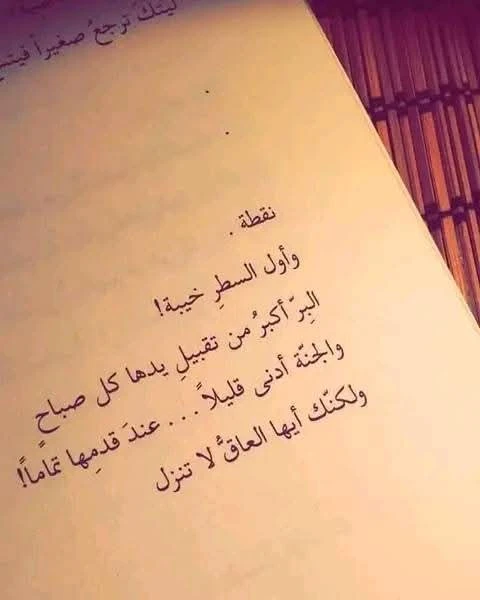 ليتك ترجعُ صغيراً
نقطة .
وأول السطرِ خيبة!
البِرّ أكبرُ من تقبيلِ يدها كل صباح
والجنّة أدنى قليلاً . . . عندَ قدمِها تماماً!
ولكنّك أيها العاقُّ لا تنزل